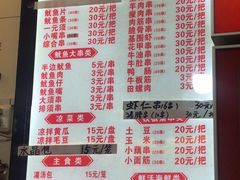 鱿鱼片 20元/把
鱿鱼条 30元/把
一元须 20元/把
小嘴串 20元/把
综合串 20元/把
鱿鱼大串类
半边鱿鱼 5元/串
鱿鱼肉 5元/串
鱿鱼仔 6元/串
鱿鱼嘴 5元/串
大须串 3元/串
排须串 3元/串
凉菜类
凉拌黄瓜 15元/盘
凉拌毛豆 15元/盘
水晶包 15元/笼
主食类
灌汤包 15元/笼
羊肉串 30元/把
30元/把
20元/把
30元/把
花毛肚 20元/把
牛油 20元/把
牛蹄筋 20元/把
鸭肠 20元/把
板筋 20元/把
虾仁串(6串) 30元
30元/把
土豆 20元/把
玉米 20元/把
小藕片 20元/把
小面筋 20元/把
鲜活海鲜类